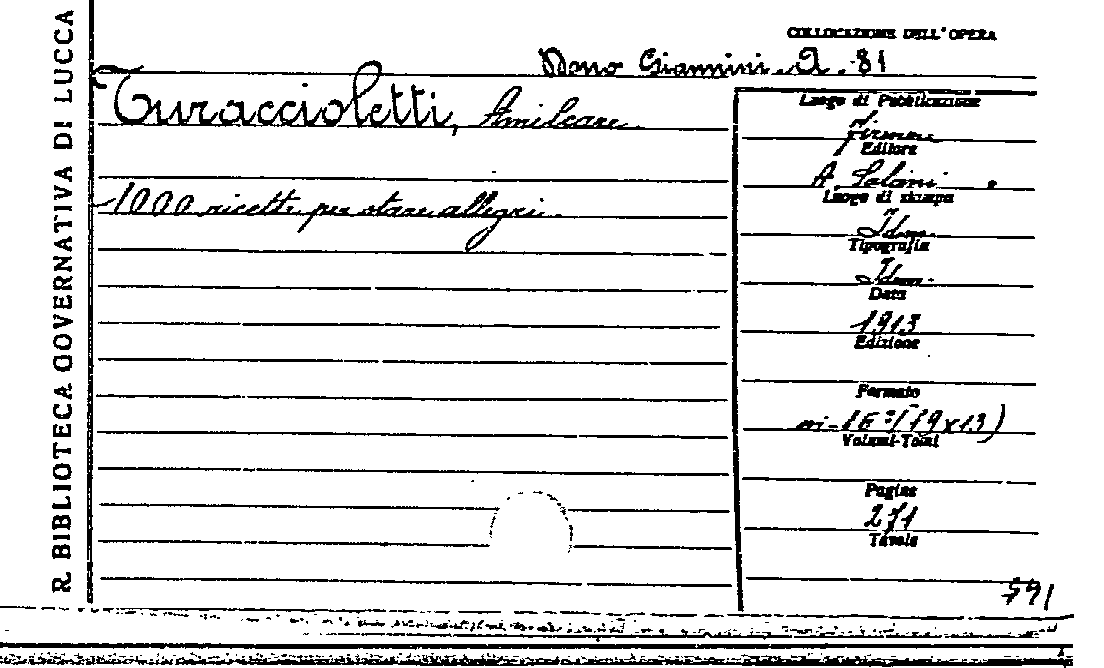 R. BIBLIOTECA GOVERNATIVA DI LUCCA
COLLOCAZIONE DELL'OPERA
Dono Giannini. Q. 81
Turaccioletti, Amilcare
1000 ricette per stare allegri.
Luogo di Pubblicazione
Editore
A. Salani
Luogo di stampa
Idem.
Tipografia
Idem.
Data
1913
Edizione
Formato
in-16º (19x13)
Volumi-Tomi
Pagine
271
Tavole